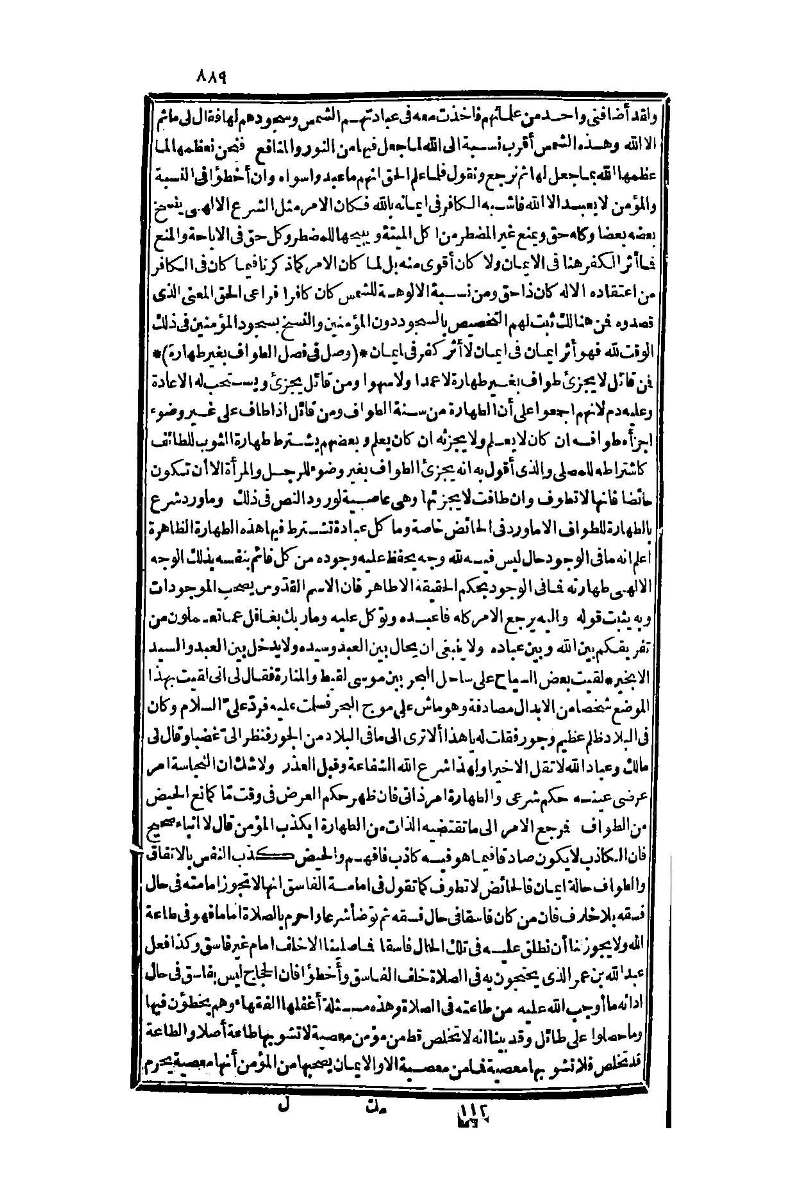 ٨٨٩
ولقد أضافني واحد من علمائهم فاخذت معه في عبادتهم الشمس وسجودهم لها فقال لي ماثم
الا الله وهذه الشمس أقرب نسبة الى الله لما جعل فيها من النور والمنافع فنحن نعظمها لما
عظمها الله بما جعل لها ثم نرجع ونقول فلما علم الحق انهم ما عبدوا سواه وان أخطؤا في النسبة
والمؤمن لا يعبد الا الله فاشبه الكافر في ايمانه بالله فكان الامر مثل الشرع الالهى ينسخ
بعضه بعضا وكله حق ويمنع غير المضطر من اكل الميتة ويبيحها للمضطر وكل حق في الاباحة والمنع
فما أثر الكفر هنا في الايمان ولا كان أقوى منه بل لما كان الامر كما ذكرنا فيما كان في الكافر
من اعتقاده الاله كان ذا حق ومن نسبة الالوهة للشمس كان كافرا فراعى الحق المعنى الذى
قصدوه فمن هنالك ثبت لهم التخصيص بالسجود دون المؤمنين والنسخ بسجود المؤمنين في ذلك
الوقت لله فهو أثر ايمان في ايمان لا أثر كفر في ايمان *(وصل في فصل الطواف بغير طهارة)*
فمن قائل لا يجزئ طواف بغير طهارة لا عمدا ولا سهوا ومن قائل يجزئ ويستحب له الاعادة
وعليه دم لانهم اجمعوا على أن الطهارة من سنة الطواف ومن قائل اذا طاف على غير وضوء
اجزأه طوافه ان كان لا يعلم ولا يجزئه ان كان يعلم وبعضهم يشترط طهارة الثوب للطائف
كاشتراطه للمصلى والذى أقول به انه يجزئ الطواف بغير وضوء للرجل والمرأة الا أن تكون
حائضا فانها لا تطوف وان طافت لا يجزئها وهى عاصية لورود النص في ذلك وما ورد شرع
بالطهارة للطواف الا ما ورد في الحائض خاصة وما كل عبادة تشترط فيها هذه الطهارة الظاهرة
اعلم انه ما في الوجود حال ليس فيه لله وجه يحفظ عليه وجوده من كل قائم بنفسه بذلك الوجه
الالهى طهارته فما في الوجود بحكم الحقيقة الا طاهر فان الاسم القدوس يصحب الموجودات
وبه يثبت قوله واليه يرجع الامر كله فاعبده وتوكل عليه وما ربك بغافل عما تعملون من
تفريقكم بين الله وبين عباده ولا ينبغى ان يحال بين العبد وسيده ولا يدخل بين العبد والسيد
الا بخير * لقيت بعض السياح على ساحل البحر بين مرسى لقيط والمنارة فقال لى انى لقيت بهذا
الموضع شخصا من الابدال مصادفة وهو ماش على موج البحر فسلمت عليه فرد علىّ السلام وكان
في البلاد ظلم عظيم وجور فقلت له يا هذا ألا ترى الى ما في البلاد من الجور فنظر الىّ غضبا وقال لى
مالك وعباد الله لا تقل الا خيرا ولهذا شرع الله الشفاعة وقبل العذر ولا شك ان النجاسة امر
عرضى عينه حكم شرعى والطهارة امر ذاتى فان ظهر حكم العرض في وقت مّا كما نع الحيض
من الطواف فمرجع الامر الى ما تقتضيه الذات من الطهارة ايكذب المؤمن قال لا انباء صحيح
فان الكاذب لا يكون صادقا فيما هو فيه كاذب فافهم والحيض كذب النفس بالاتفاق
والطواف حالة ايمان فالحائض لا تطوف كما تقول في امامة الفاسق انها لا تجوز امامته في حال
فسقه بلا خلاف فان من كان فاسقا في حال فسقه ثم توضأ شرعا واحرم بالصلاة اماما فهو في طاعة
الله ولا يجوز لنا أن نطلق عليه في تلك الحال فاسقا فما صلينا الا خلف امام غير فاسق وكذا فعل
عبد الله بن عمر الذى يحتجون به في الصلاة خلف الفاسق وأخطؤا فان الحجاج ليس بفاسق في حال
ادائه ما أوجب الله عليه من طاعته في الصلاة وهذه مسئلة أغفلها الفقهاء وهم يخطؤن فيها
وما حصلوا على طائل وقد بينا انه لا تخلص قط من مؤمن معصية لا تشوبها طاعة أصلا والطاعة
قد تخلص فلا تشوبها معصية فما من معصية الا والايمان يصحبها من المؤمن أنها معصية يحرم
١١٢ مك ل